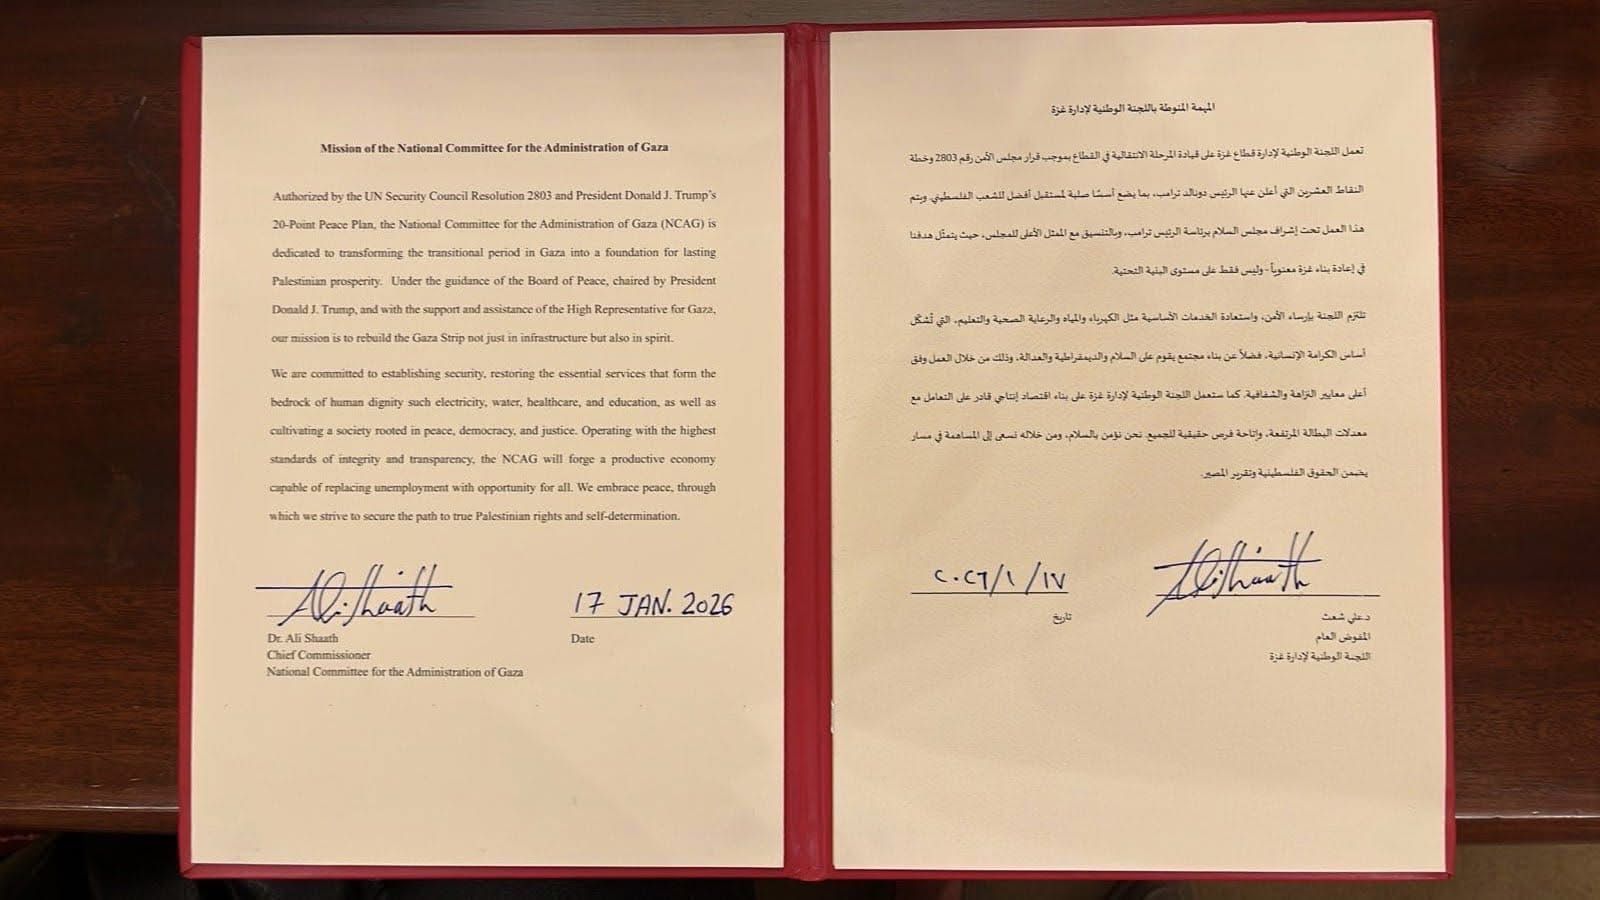 Mission of the National Committee for the Administration of Gaza
Authorized by the UN Security Council Resolution 2803 and President Donald J. Trump's
20-Point Peace Plan, the National Committee for the Administration of Gaza (NCAG) is
dedicated to transforming the transitional period in Gaza into a foundation for lasting
Palestinian prosperity. Under the guidance of the Board of Peace, chaired by President
Donald J. Trump, and with the support and assistance of the High Representative for Gaza,
our mission is to rebuild the Gaza Strip not just in infrastructure but also in spirit.
We are committed to establishing security, restoring the essential services that form the
bedrock of human dignity such electricity, water, healthcare, and education, as well as
cultivating a society rooted in peace, democracy, and justice. Operating with the highest
standards of integrity and transparency, the NCAG will forge a productive economy
capable of replacing unemployment with opportunity for all. We embrace peace, through
which we strive to secure the path to true Palestinian rights and self-determination.
Ali Shaath
17 JAN. 2026
Dr. Ali Shaath
Date
Chief Commissioner
National Committee for the Administration of Gaza
المهمة المنوطة باللجنة الوطنية لإدارة غزة
تعمل اللجنة الوطنية لإدارة قطاع غزة على قيادة المرحلة الانتقالية في القطاع بموجب قرار مجلس الأمن رقم 2803 وخطة
النقاط العشرين التي أعلن عنها الرئيس دونالد ترامب، بما يضع أسسًا صلبة لمستقبل أفضل للشعب الفلسطيني. ويتم
هذا العمل تحت إشراف مجلس السلام برئاسة الرئيس ترامب، وبالتنسيق مع الممثل الأعلى للمجلس، حيث يتمثّل هدفنا
في إعادة بناء غزة معنوياً - وليس فقط على مستوى البنية التحتية.
تلتزم اللجنة بإرساء الأمن، واستعادة الخدمات الأساسية مثل الكهرباء والمياه والرعاية الصحية والتعليم، التي تُشكّل
أساس الكرامة الإنسانية، فضلاً عن بناء مجتمع يقوم على السلام والديمقراطية والعدالة، وذلك من خلال العمل وفق
أعلى معايير النزاهة والشفافية. كما ستعمل اللجنة الوطنية لإدارة غزة على بناء اقتصاد إنتاجي قادر على التعامل مع
معدلات البطالة المرتفعة، واتاحة فرص حقيقية للجميع. نحن نؤمن بالسلام، ومن خلاله نسعى إلى المساهمة في مسار
يضمن الحقوق الفلسطينية وتقرير المصير.
Ali Shaath
٢٠٢٦/١/١٧
د.علي شعث
تاريخ
المفوض العام
اللجنة الوطنية لإدارة غزة